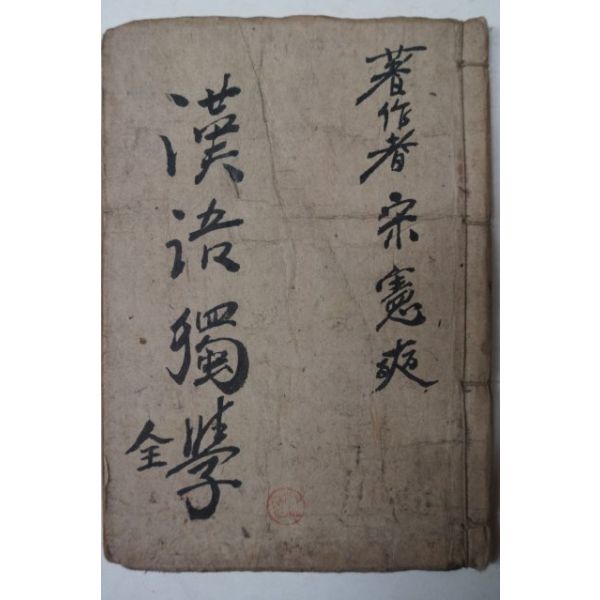 著作者 宋憲奭
漢語獨學
全